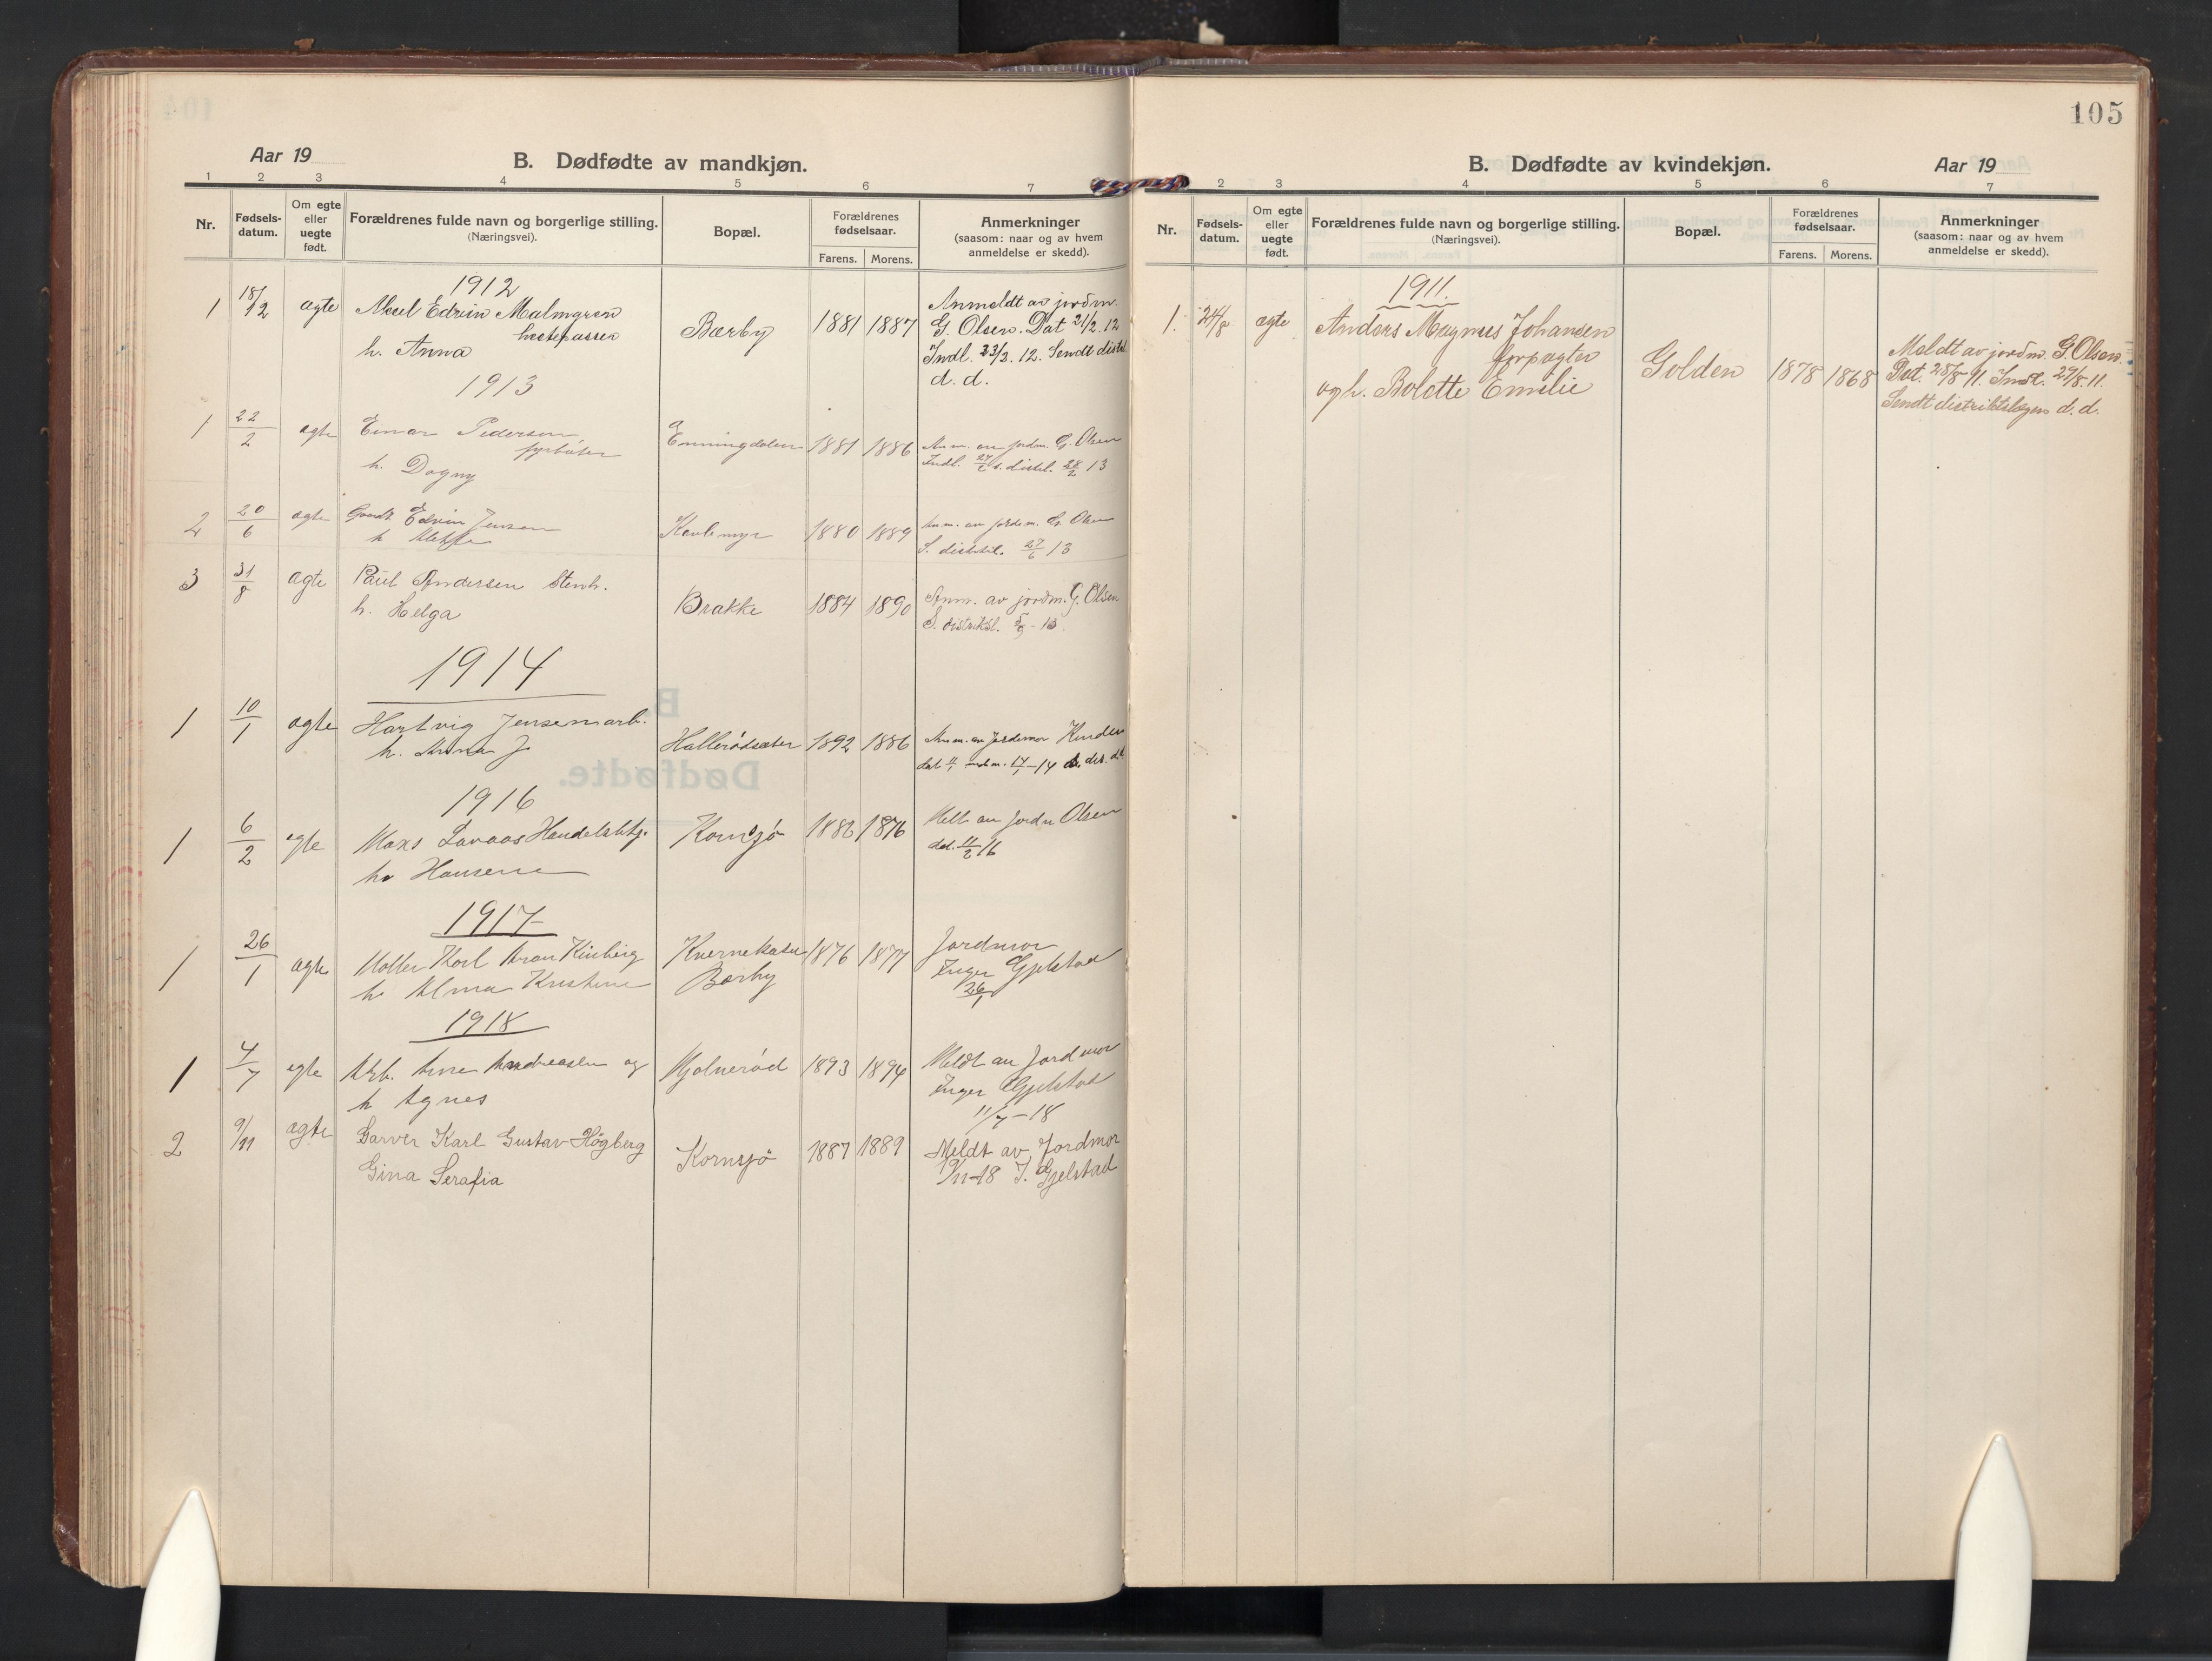 Aar 19
B. Dødfødte av mandkjøn.
1 2 3 4 5 6 7
Nr.
Fødsels-
datum.
Om egte
eller
uegte
født.
Forældrenes fulde navn og borgerlige stilling.
(Næringsvei).
Bopæl.
Forældrenes
fødselsaar.
Farens. Morens.
Anmerkninger
(saasom: naar og av hvem
anmeldelse er skedd).
1912
1 18/12 ægte Edvin Malmgren
h. Anna
Bærby 1881 1887
Anmeldt av jordm.
G. Olsen. Dat 21/2. 12
Indl. 23/2. 12. Sendt
d. d.
1913
1 22/2 ægte Einar Pedersen
fyrbøter
h. Dagny
Enningdalen 1881 1886
Anm. av jordm. G. Olsen
Indl. 27/2 s. distl. 28/2 13
2 20/6 ægte Edvin Jensen
h
1880 1889
Anm. av jordm. G. Olsen
S. 27/6 13
3 31/8 ægte Paul Andersen Stenh.
h. Helga
Brække 1884 1890
Anm. av jordm. G. Olsen
S. distriktsl. 5/9 - 13.
1914
1 10/1 ægte Hartvig Jensen arb.
h. Anna J
1892 1886
Anm. av Jordemor
14
1916
1 6/2 egte Handelsbtj.
h.
Kornsjø 1882 1876
Meldt av Jordm Olsen
dat. 11/2 16
1917
1 26/1 ægte Karl
h Alma Kristine
Bærby 1876 1877
Jordmor
Inger Gjelstad
26/1
1918
1 4/7 egte Arb. Arne Andreassen og
h Agnes
Mjølnerød 1893 1894
Meldt av Jordmor
Inger Gjelstad
11/7 - 18
2 9/11 ægte Garver Karl Gustav Högberg
Gina Serafia
Kornsjø 1887 1889
Meldt av Jordmor
9/11-18 I. Gjelstad
105
B. Dødfødte av kvindekjøn.
Aar 19
2 3 4 5 6 7
Nr.
Fødsels-
datum.
Om egte
eller
uegte
født.
Forældrenes fulde navn og borgerlige stilling.
(Næringsvei).
Bopæl.
Forældrenes
fødselsaar.
Farens. Morens.
Anmerkninger
(saasom: naar og av hvem
anmeldelse er skedd).
1911.
1. 24/8 ægte Anders Magnus Johansen
forpagter
og h. Bolette Emilie
Golden 1878 1868
Meldt av jordm. G. Olsen.
Dat. 28/8 11. Indl. 29/8. 11.
Sendt distriktslægen d. d.